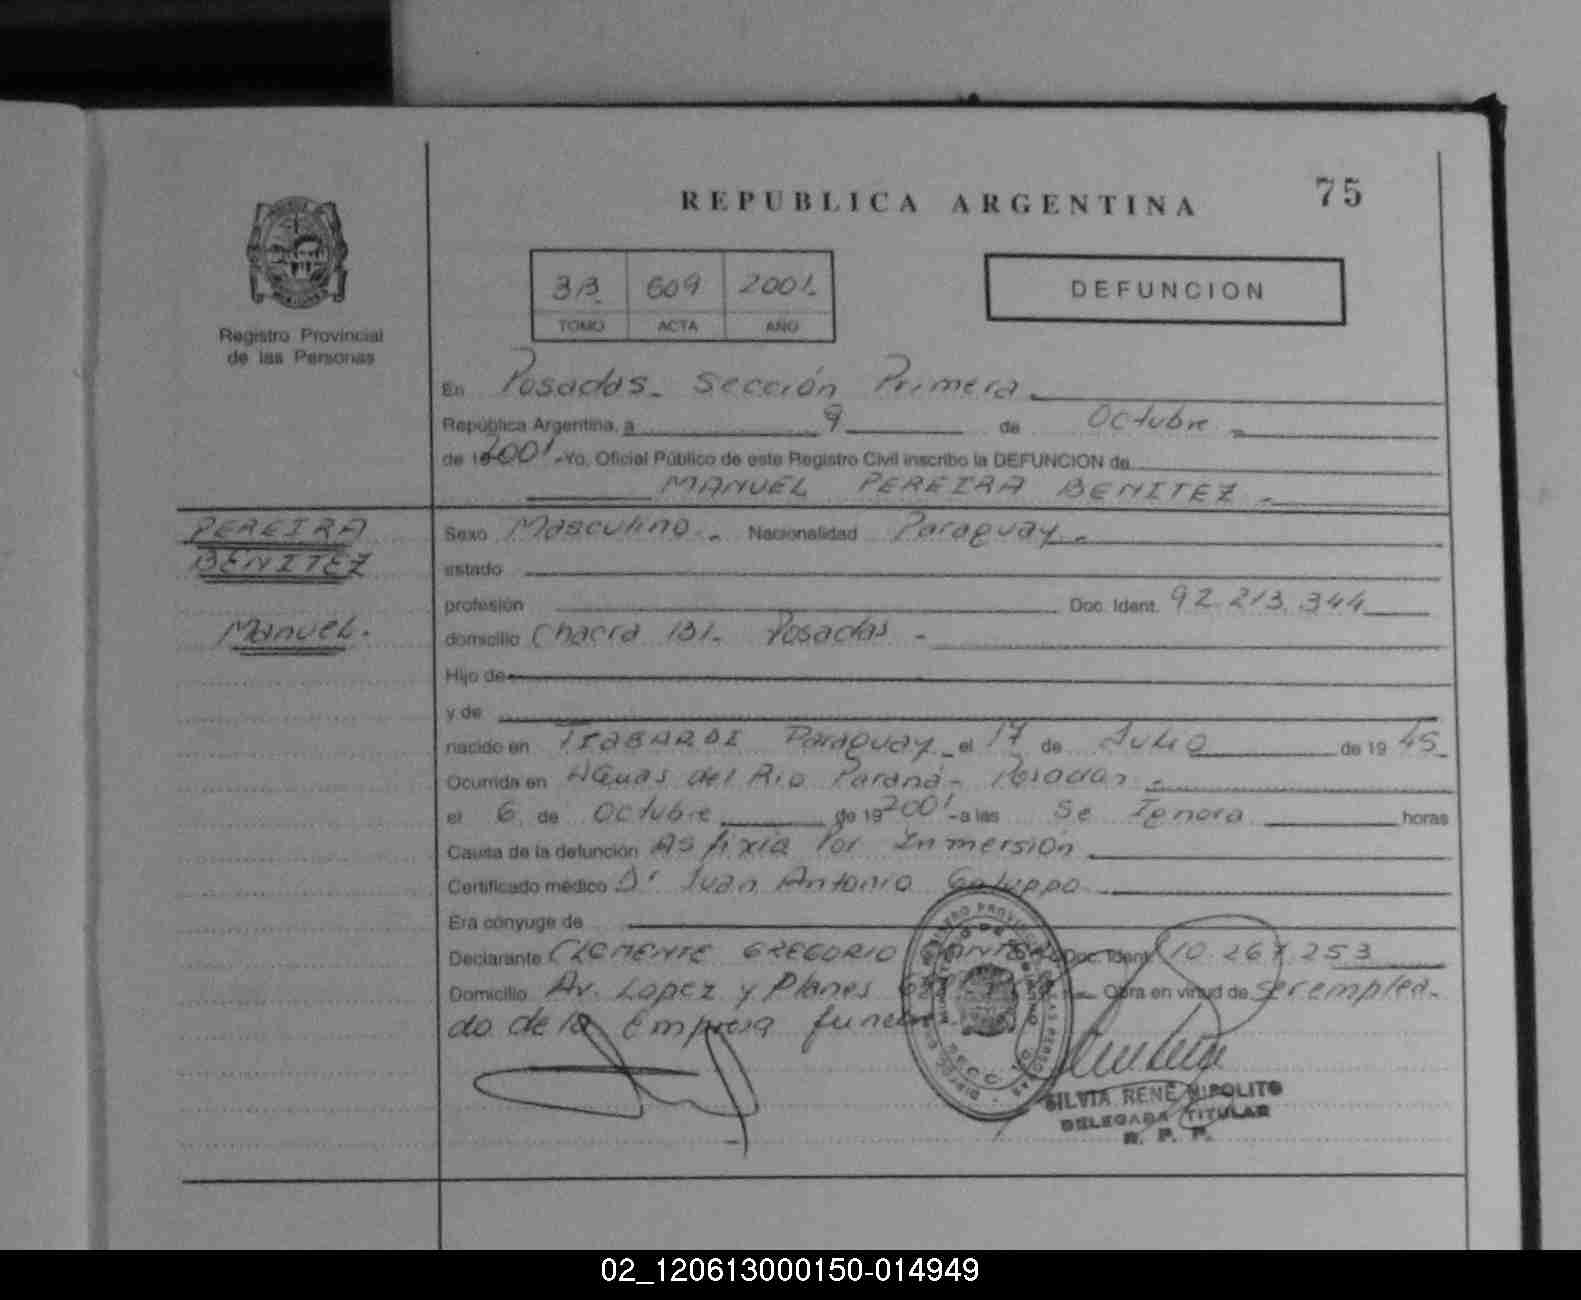 REPUBLICA ARGENTINA
75
Registro Provincial
de las Personas
3B 609 2001.
TOMO ACTA AÑO
DEFUNCION
En Posadas. Sección Primera
República Argentina, a 9 de Octubre
de 19 2001 .-Yo, Oficial Público de este Registro Civil inscribo la DEFUNCION de
MANUEL PEREIRA BENITEZ
PEREIRA
BENITEZ
Manuel.
Sexo Masculino. Nacionalidad Paraguay.
estado
profesión Doc. Ident. 92.213.344
domicilio Chacra 131. Posadas
Hijo de
y de
nacido en Paraguay el 17 de Julio de 19 45
Ocurrida en Aguas del Rio Paraná - Posadas
el 6 de Octubre de 19 2001 -a las Se Ignora horas
Causa de la defunción Asfixia Por Inmersión
Certificado médico Dr Juan Antonio
Era cónyuge de
Declarante CLEMENTE GREGORIO Doc. Ident. 10.267.253
Domicilio Av. Lopez y Planes Obra en virtud de ser emplea-
do de la Empresa
SILVIA RENE HIPOLITO
DELEGADA TITULAR
R. P. P.
02_120613000150-014949